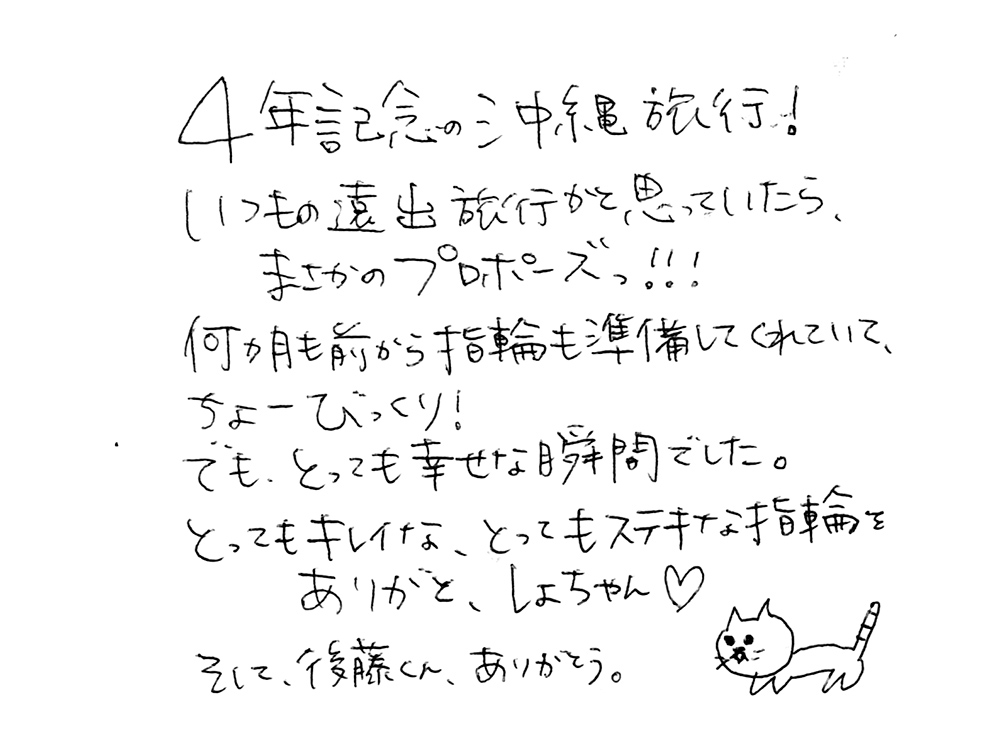 4年記念の沖縄旅行!
いつもの遠出旅行がと思っていたら、
まさかのプロポーズっ!!!
何か月も前から指輪も準備してくれていて、
ちょーびっくり!
でも、とっても幸せな瞬間でした。
とってもキレイな、とってもステキな指輪を
ありがと、しょちゃん♡
そして、後藤くん、ありがとう。